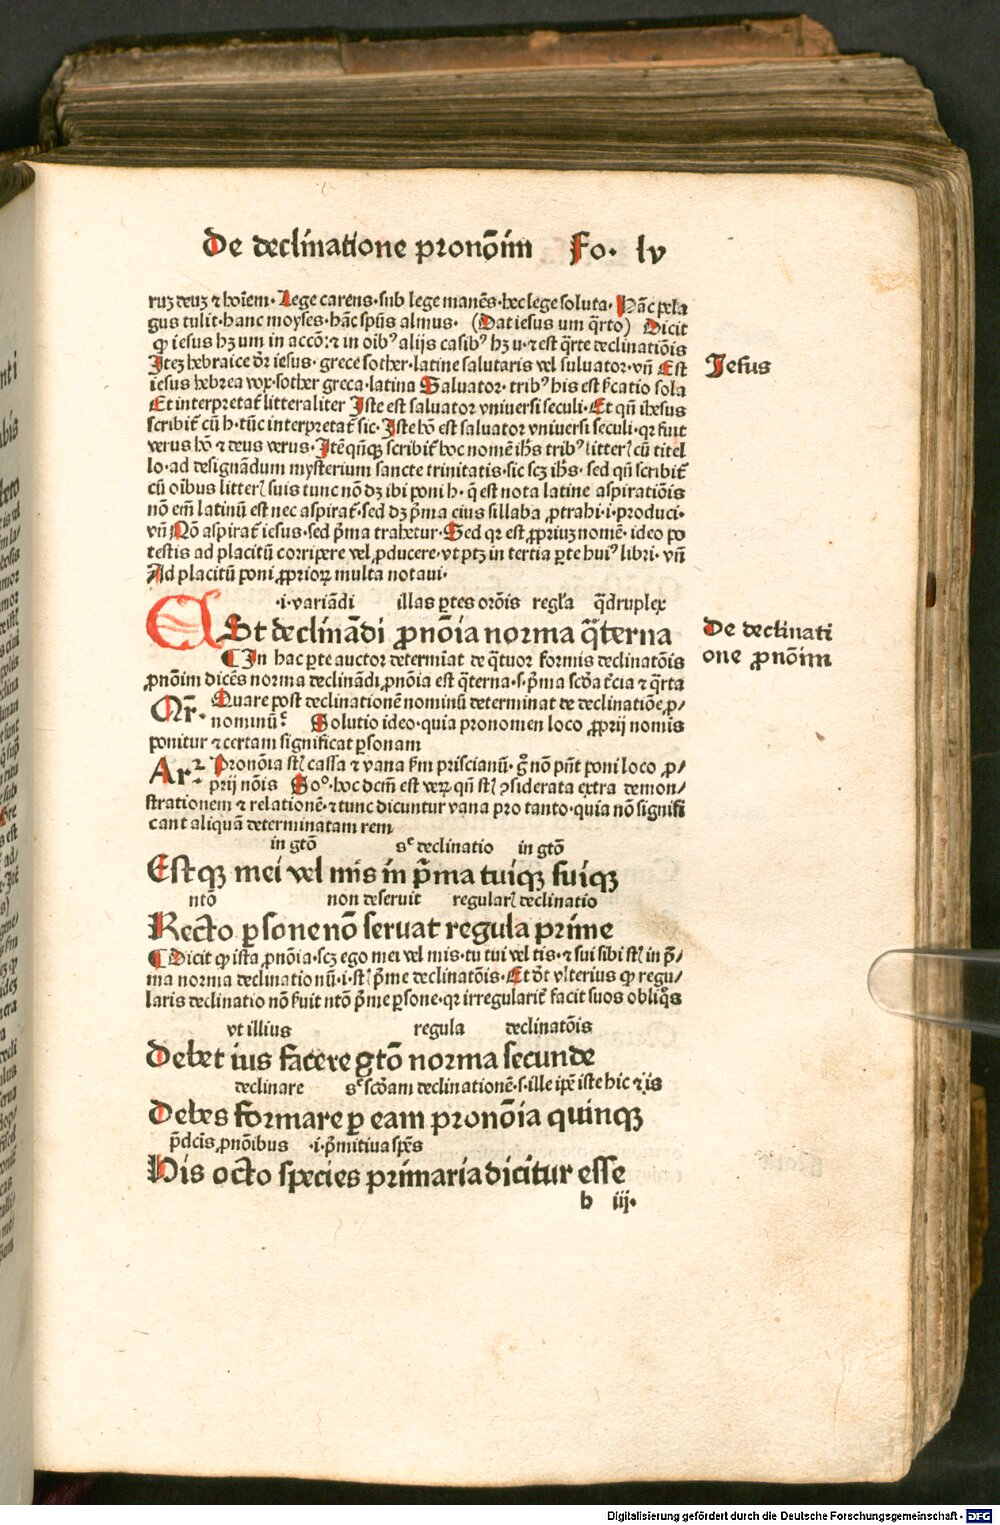 De declinatione pronoīm Fo. lv
ruꝫ deuꝫ ⁊ hoīem. Lege carens.sub lege manēs.hec lege soluta. Hāc pela
gus tulit.hanc moyses.hāc spūs almus. (Dat iesus um q̄rto) Dicit
ꝙ iesus hꝫ um in accō.⁊ in oibꝰ alijs casibꝰ hꝫ u.⁊ est q̄rte declinatiōis
Iteꝫ hebraice dr̄ iesus. grece sother.latine salutaris vel saluator.vn̄ Est
iesus hebrea vox.sother greca.latina Saluator.tribꝰ his est s̄catio sola
Et interpretat̄ litteraliter Iste est saluator vniuersi seculi. Et qn̄ ihesus
scribit̄ cū h. tūc interpretat̄ sic. Iste hō est saluator vniuersi seculi.qꝛ fuit
verus hō ⁊ deus verus. Itē qn̄qꝫ scribit̄ hoc nomē ih̄s tribꝰ litterꝭ cū titel
lo.ad designādum mysterium sancte trinitatis.sic scꝫ ih̄s. sed qn̄ scribit̄
cū oībus litterꝭ suis tunc nō dꝫ ibi poni h. q̄ est nota latine aspiratiōis
nō em̄ latinū est nec aspirat̄. sed dꝫ p̄ma eius sillaba ꝓtrahi.i.produci.
vn̄ Nō aspirat̄ iesus.sed p̄ma trahetur. Sed qꝛ est ꝓpriuꝫ nomē. ideo po
testis ad placitū corripere vel ꝓducere.vt ptꝫ in tertia ꝑte huiꝰ libri. vn̄
Ad placitū poni ꝓprioꝝ multa notaui.
Iesus
.i.variādi illas ꝑtes orōis regl'a q̄druplex
ESt declinādi ꝓnōia norma q̄terna
De declinati
one ꝓnōim
¶ In hac ꝑte auctor determīat de q̄tuor formis declinatōis
ꝓnōim dicēs norma declinādi ꝓnōia est q̄terna.s.p̄ma scd̄a t̄cia ⁊ q̄rta
Qr̄. Quare post declinationē nominū determinat de declinatiōe ꝓ/
nominū? Solutio ideo.quia pronomen loco ꝓprij nomis
ponitur ⁊ certam significat ꝑsonam
Ar̄. Pronōia st̄ cassa ⁊ vana s̄m priscianū.g̊ nō pn̄t poni loco ꝓ/
prij nōis Soº.hoc dcm̄ est veꝝ qn̄ st̄ ꝯsiderata extra demon/
strationem ⁊ relationē.⁊ tunc dicuntur vana pro tanto.quia nō signifi
cant aliquā determinatam rem
in gtō sᶜ declinatio in gtō
Estqꝫ mei vel mis in p̄ma tuiqꝫ suiqꝫ
ntō non deseruit regularꝭ declinatio
Recto ꝑsone nō seruat regula prime
¶ Dicit ꝙ ista ꝓnōia.scꝫ ego mei vel mis.tu tui vel tis.⁊ sui sibi st̄ in p̄/
ma norma declinationū.i.st̄ p̄me declinatōis. Et dt̄ vlterius ꝙ regu/
laris declinatio nō fuit ntō p̄me ꝑsone.qꝛ irregularit̄ facit suos obliq̊s
vt illius regula declinatōis
Debet ius facere gtō norma secunde
declinare sᶜ scd̄am declinationē.s.ille ip̄e iste hic ⁊ is
Debes formare ꝑ eam pronōia quinqꝫ
p̄dcis ꝓnōibus .i.p̄mitiua sp̄es
His octo species primaria dicitur esse
h iij.
Digitalisierung gefördert durch die Deutsche Forschungsgemeinschaft - DFG